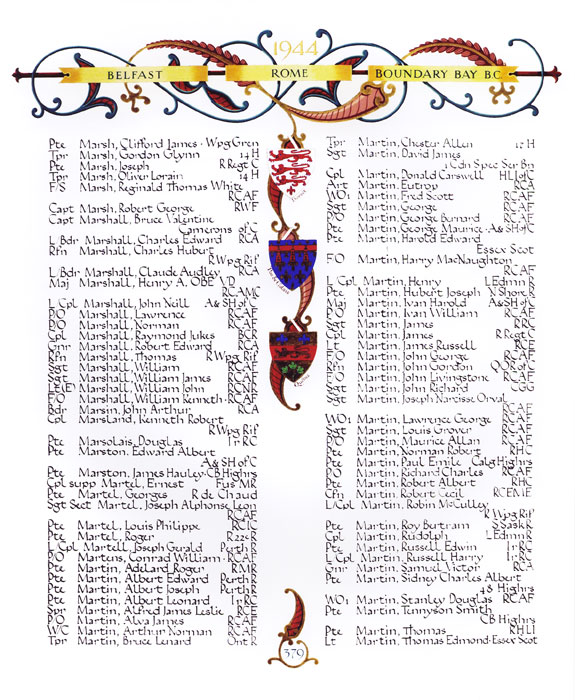 1944
BELFAST ROME BOUNDARY BAY B.C.
Pte Marsh, Clifford James · Wpg Gren
Tpr Marsh, Gordon Glynn 14 H
Pte Marsh, Joseph R Regt C
Tpr Marsh, Oliver Lorain 14 H
F/S Marsh, Reginald Thomas White
RCAF
Capt Marsh, Robert George RWF
Capt Marshall, Bruce Valentine
Camerons of C
L/Bdr Marshall, Charles Edward RCA
Rfn Marshall, Charles Hubert
R Wpg Rif
L/Bdr Marshall, Claude Audley RCA
Maj Marshall, Henry A. OBE VD
RCAMC
L/Cpl Marshall, John Neill A & SH of C
P/O Marshall, Lawrence RCAF
P/O Marshall, Norman RCAF
Cpl Marshall, Raymond Jukes BCR
Gnr Marshall, Robert Edward RCA
Rfn Marshall, Thomas R Wpg Rif
Sgt Marshall, William RCAF
Sgt Marshall, William James RCAF
Lt(E) Marshall, William John RCNR
F/O Marshall, William Kenneth · RCAF
Bdr Marsin, John Arthur RCA
Cpl Marsland, Kenneth Robert
R Wpg Rif
Pte Marsolais, Douglas Ir RC
Pte Marston, Edward Albert
A & SH of C
Pte Marston, James Hauley · CB Highrs
Cpl supp Martel, Ernest Fus MR
Pte Martel, Georges R de Chaud
Sgt Sect Martel, Joseph Alphonse Leon
RCAF
Pte Martel, Louis Philippe RCIC
Pte Martel, Roger R 22e R
L/Cpl Martell, Joseph Gerald Perth R
P/O Martens, Conrad William · RCAF
Pte Martin, Adelard Roger RMR
Pte Martin, Albert Edward Perth R
Pte Martin, Albert Joseph Perth R
Pte Martin, Albert Leonard Ir RC
Spr Martin, Alfred James Leslie RCE
P/O Martin, Alva James RCAF
W/C Martin, Arthur Norman RCAF
Tpr Martin, Bruce Lenard Ont R
Tpr Martin, Chester Allen 17 H
Sgt Martin, David James
1 Cdn Spec Ser Bn
Cpl Martin, Donald Carswell HLI of C
Art Martin, Eutrop RCA
WO1 Martin, Fred Scott RCAF
Sgt Martin, George RCAF
P/O Martin, George Bernard RCAF
Pte Martin, George Maurice · A & SH of C
Pte Martin, Harold Edward
Essex Scot
F/O Martin, Harry MacNaughton
RCAF
L/Cpl Martin, Henry L Edmn R
Pte Martin, Hubert Joseph N Shore R
Maj Martin, Ivan Harold A & SH of C
P/O Martin, Ivan William RCAF
Sgt Martin, James RRC
Cpl Martin, James R Regt C
Lt Martin, James Russell RCE
F/O Martin, John George RCAF
Rfn Martin, John Gordon QOR of C
F/O Martin, John Livingstone RCAF
Sgt Martin, John Richard CGG
Sgt Martin, Joseph Narcisse Orval
RCAF
WO1 Martin, Lawrence George RCAF
Sgt Martin, Louis Grover RCAF
P/O Martin, Maurice Allan RCAF
Pte Martin, Norman Robert RHC
Pte Martin, Paul Emile Calg Highrs
P/O Martin, Richard Charles RCAF
Pte Martin, Robert Albert RHC
Cfn Martin, Robert Cecil RCEME
L/Cpl Martin, Robin McCulley
R Wpg Rif
Pte Martin, Roy Bertram S Sask R
Cpl Martin, Rudolph L Edmn R
Pte Martin, Russell Edwin Ir RC
L/Cpl Martin, Russell Harry Ir RC
Gnr Martin, Samuel Victor RCA
Pte Martin, Sidney Charles Albert
48 Highrs
WO1 Martin, Stanley Douglas RCAF
Pte Martin, Tennyson Smith
CB Highrs
Pte Martin, Thomas RHLI
Lt Martin, Thomas Edmond · Essex Scot
379